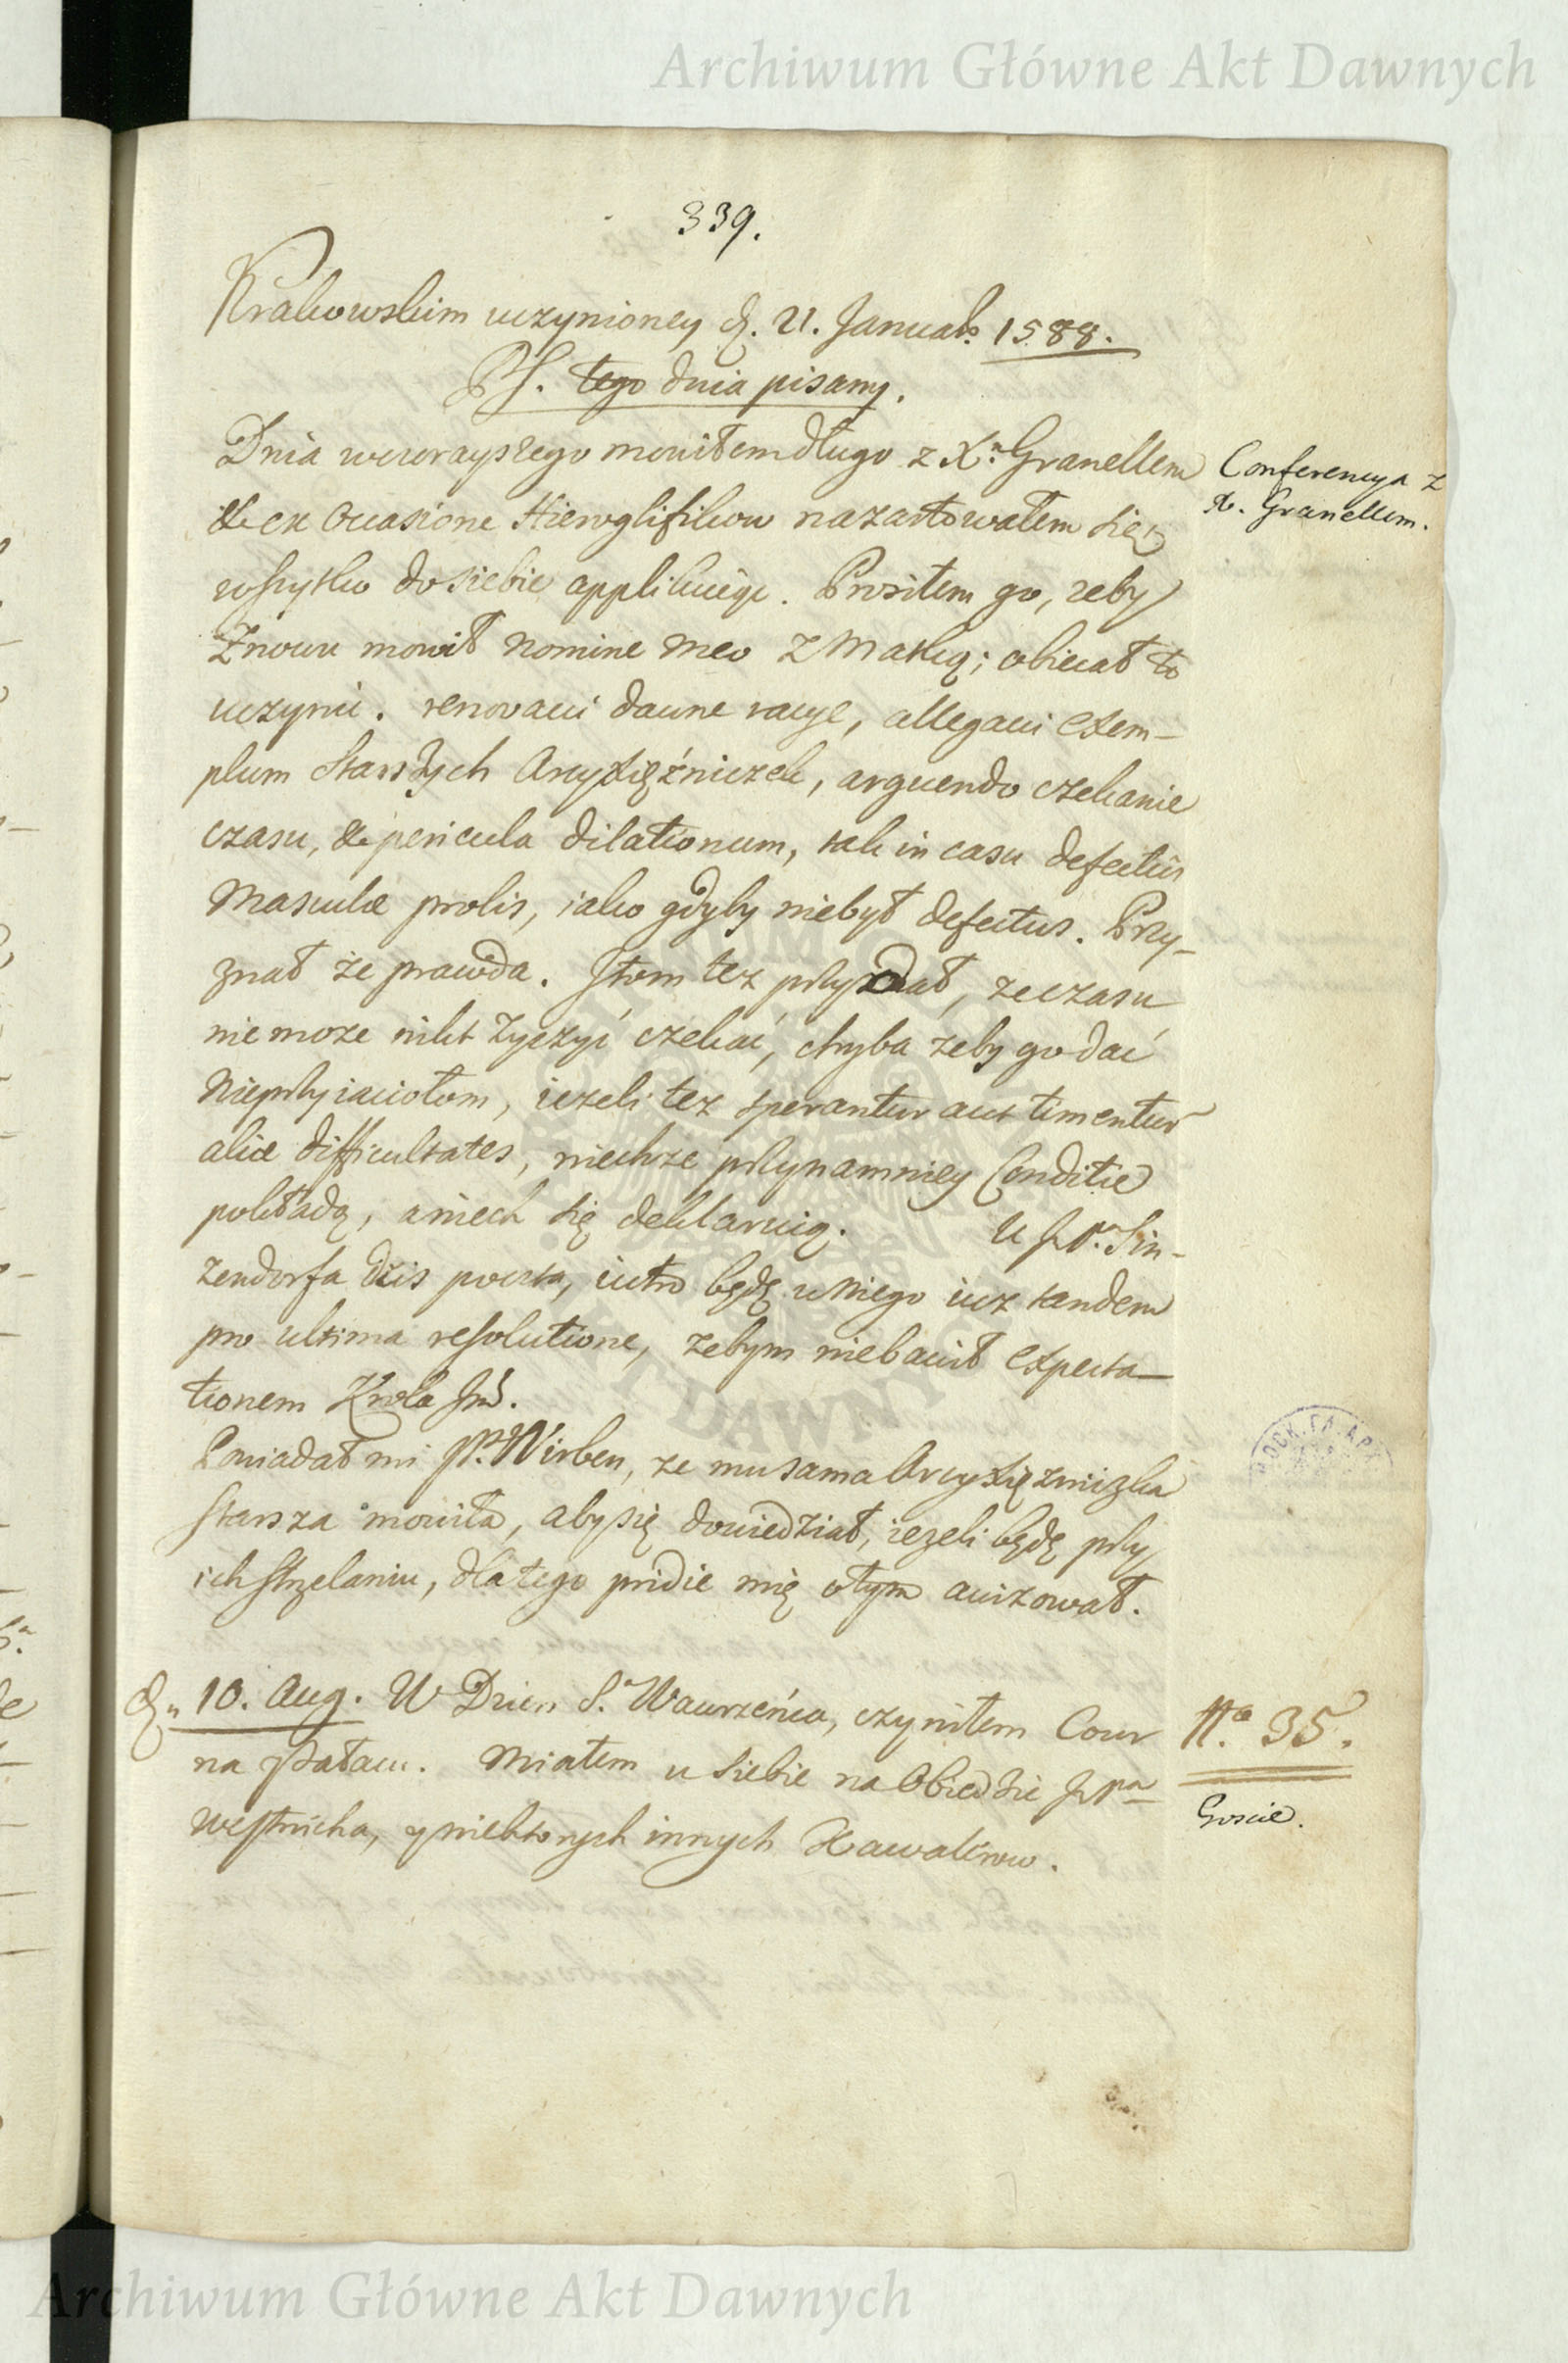 Archiwum Główne Akt Dawnych
339.
Krakowskim uczynioney d. 21. Januar. 1588.
PS. tego dnia pisany.
Dnia wczorayszego mowiłem długo z X. Granellem
Conferencya z
X. Granellem.
& ex occasione Hieroglifikow nazartowałem się
wszytko do siebie applikuiąc. Prosiłem go, zeby
znowu mowił nomine meo z Matką; obiecał to
uczynić. renovaui dawne racye, allegaui exem-
plum Starszych Arcyxięźniczek, arguendo czekanie
czasu, & pericula dilationum, tak in casu defectûs
Masculæ prolis, iako gdyby niebył defectus. Przy-
znał że prawda. Jtom tez przydał, ze czasu
nie moze nikt zyczyć czekać, chyba zeby go dać
Nieprzyiaciołom, iezeli tez sperantur aut timentur
aliæ difficultates, niechze przynamniey Conditie
pokładą, a niech się deklaruią. U JP. Sin-
zendorfa dzis poczta, iutro będę u niego iuz tandem
pro ultima resolutione, zebym niebawił expecta-
tionem Krola Jmć.
Powiadał mi JP. Wirben, ze mu sama Arcyxięzniczka
starsza mowiła, aby się dowiedział, iezeli będę przy
ich strzelaniu, dla tego pridie mię o tym awizował.
d. 10. Aug. W Dzien S. Wawrzeńca, czyniłem Cour
No 35.
na Pałacu. Miałem u siebie na Obiedzie JPa
Goscie.
Westricha, y niektorych innych Kawalerow.
Archiwum Główne Akt Dawnych